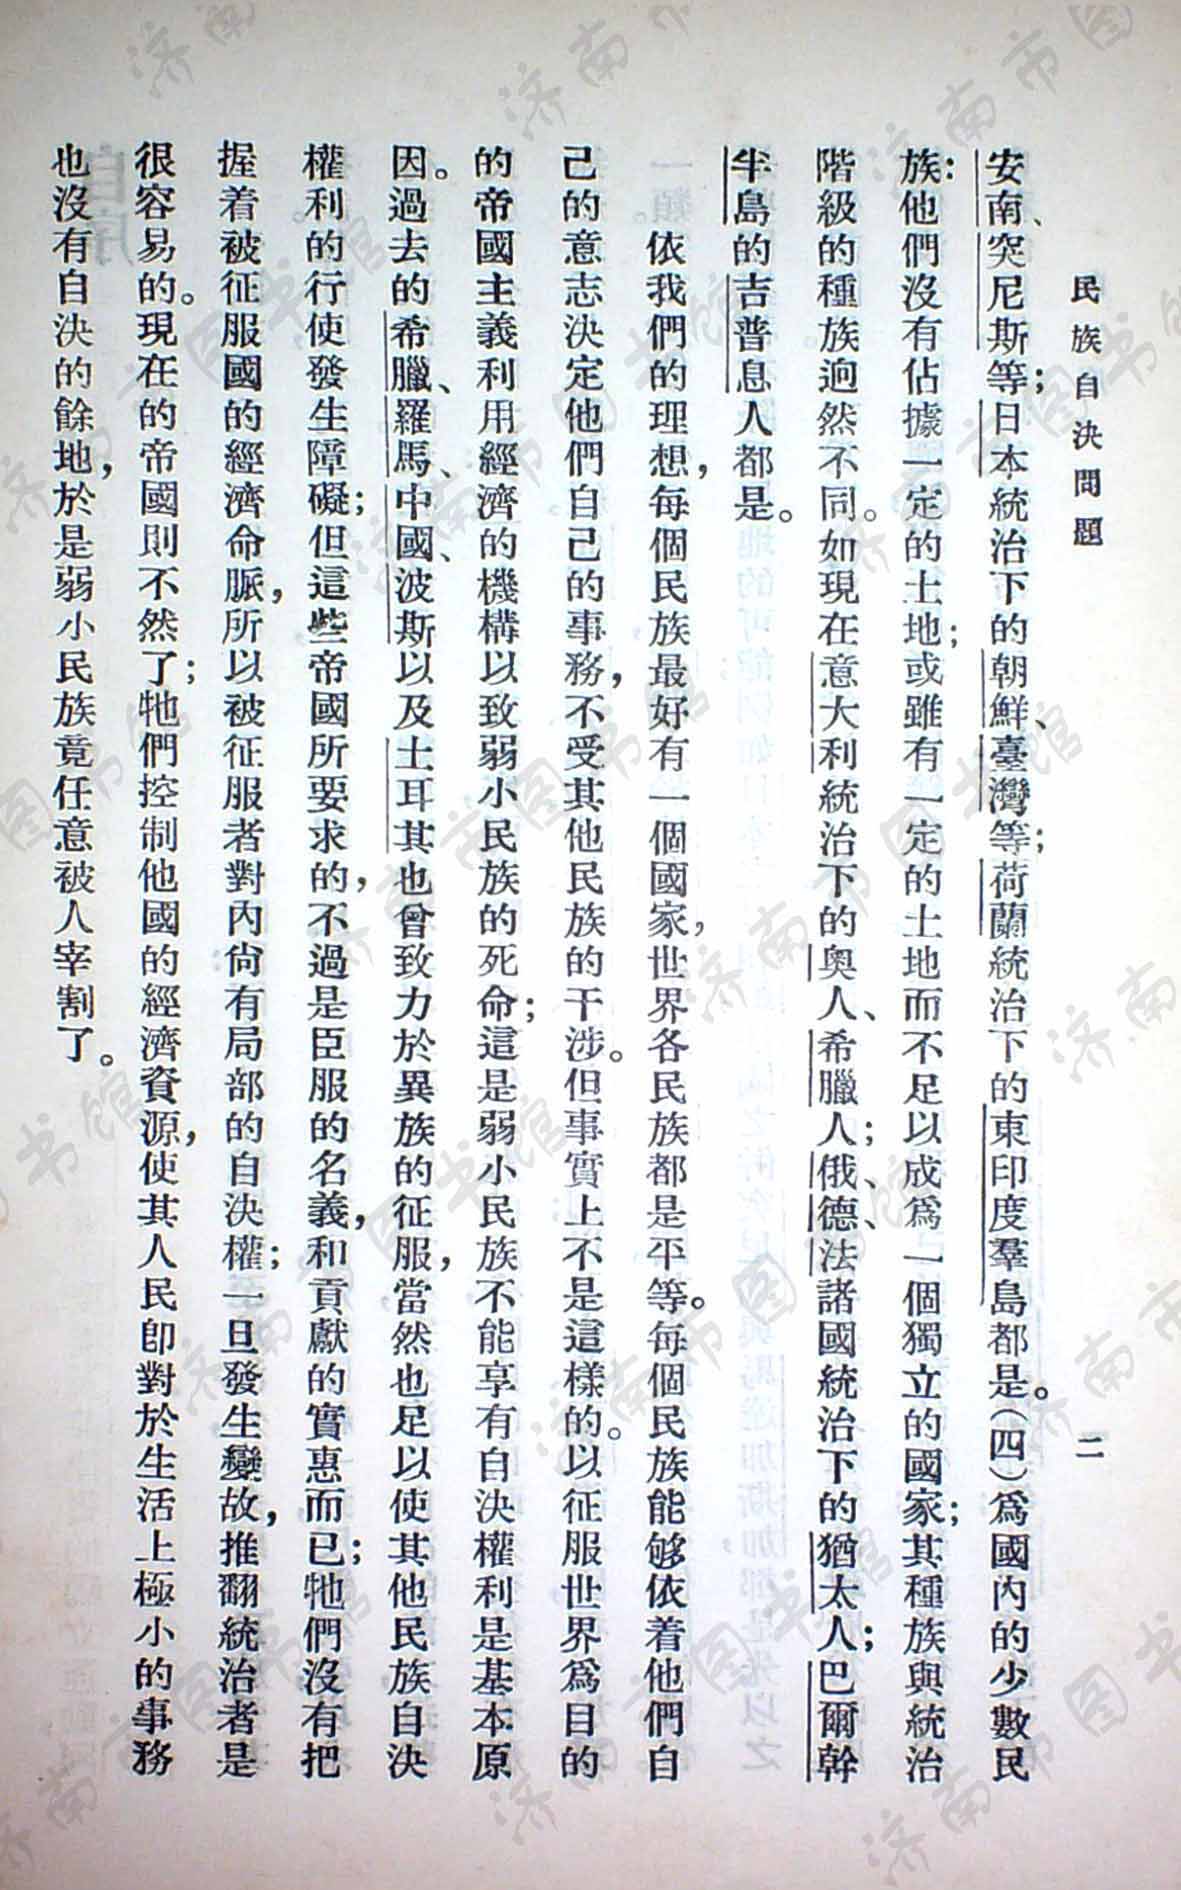 民族自決問題
二
安南、突尼斯等；日本統治下的朝鮮、臺灣等；荷蘭統治下的東印度羣島都是。（四）爲國內的少數民
族：他們沒有佔據一定的土地；或雖有一定的土地而不足以成爲一個獨立的國家；其種族與統治
階級的種族迥然不同。如現在意大利統治下的奧人、希臘人；俄、德、法諸國統治下的猶太人；巴爾幹
半島的吉普息人都是。
依我們的理想，每個民族最好有一個國家，世界各民族都是平等。每個民族能够依着他們自
己的意志決定他們自己的事務，不受其他民族的干涉。但事實上不是這樣的。以征服世界爲目的
的帝國主義利用經濟的機構以致弱小民族的死命；這是弱小民族不能享有自決權利是基本原
因。過去的希臘、羅馬、中國、波斯以及土耳其也曾致力於異族的征服，當然也足以使其他民族自決
權利的行使發生障礙；但這些帝國所要求的，不過是臣服的名義，和貢獻的實惠而已；牠們沒有把
握着被征服國的經濟命脈，所以被征服者對內尙有局部的自決權；一旦發生變故，推翻統治者是
很容易的。現在的帝國則不然了；牠們控制他國的經濟資源，使其人民卽對於生活上極小的事務
也沒有自決的餘地，於是弱小民族竟任意被人宰割了。
济南市图书馆